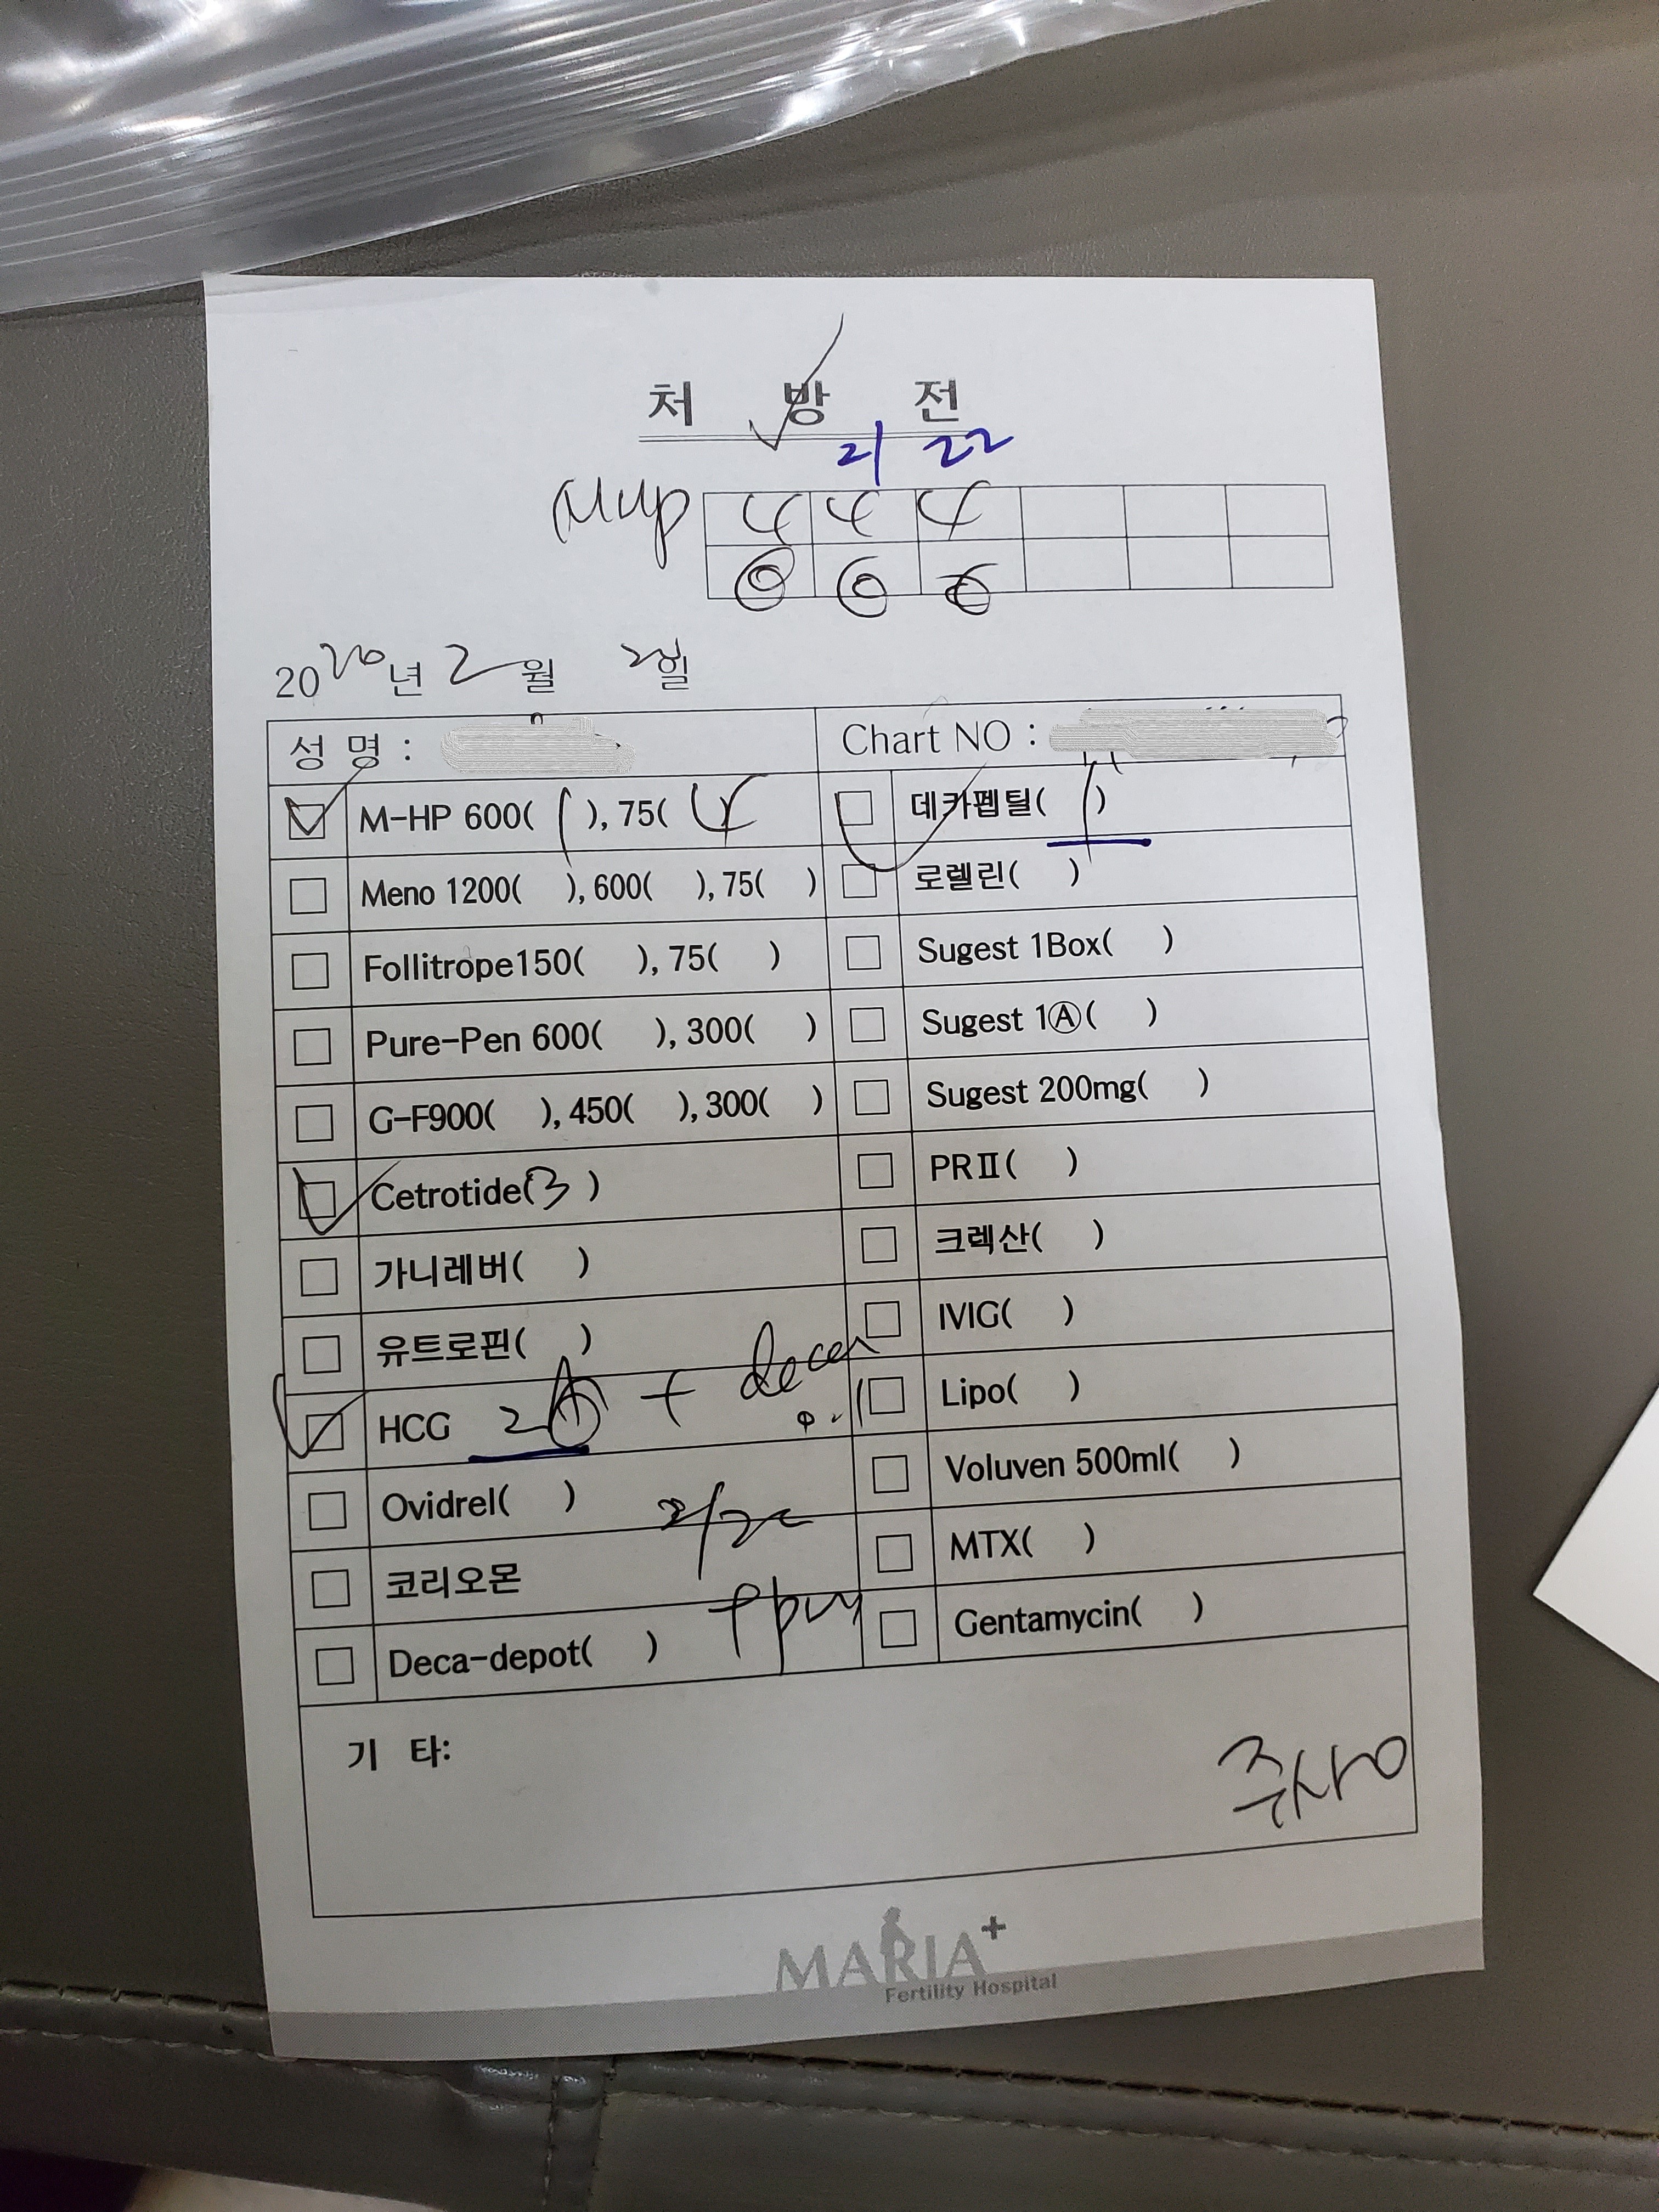 처 방 전
21 22
MHP 4 4 4
2020년 2월 일
성 명 :
Chart NO :
M-HP 600( 1 ), 75( 4
데카펩틸( 1 )
Meno 1200( ), 600( ), 75( )
로렐린( )
Follitrope150( ), 75( )
Sugest 1Box( )
Pure-Pen 600( ), 300( )
Sugest 1Ⓐ( )
G-F900( ), 450( ), 300( )
Sugest 200mg( )
Cetrotide(3 )
PRⅡ( )
가니레버( )
크렉산( )
유트로핀( )
IVIG( )
HCG 2Ⓐ + deca
0.1
Lipo( )
Ovidrel( )
Voluven 500ml( )
코리오몬
MTX( )
Deca-depot( )
Gentamycin( )
기 타:
주사O
MARIA+
Fertility Hospital